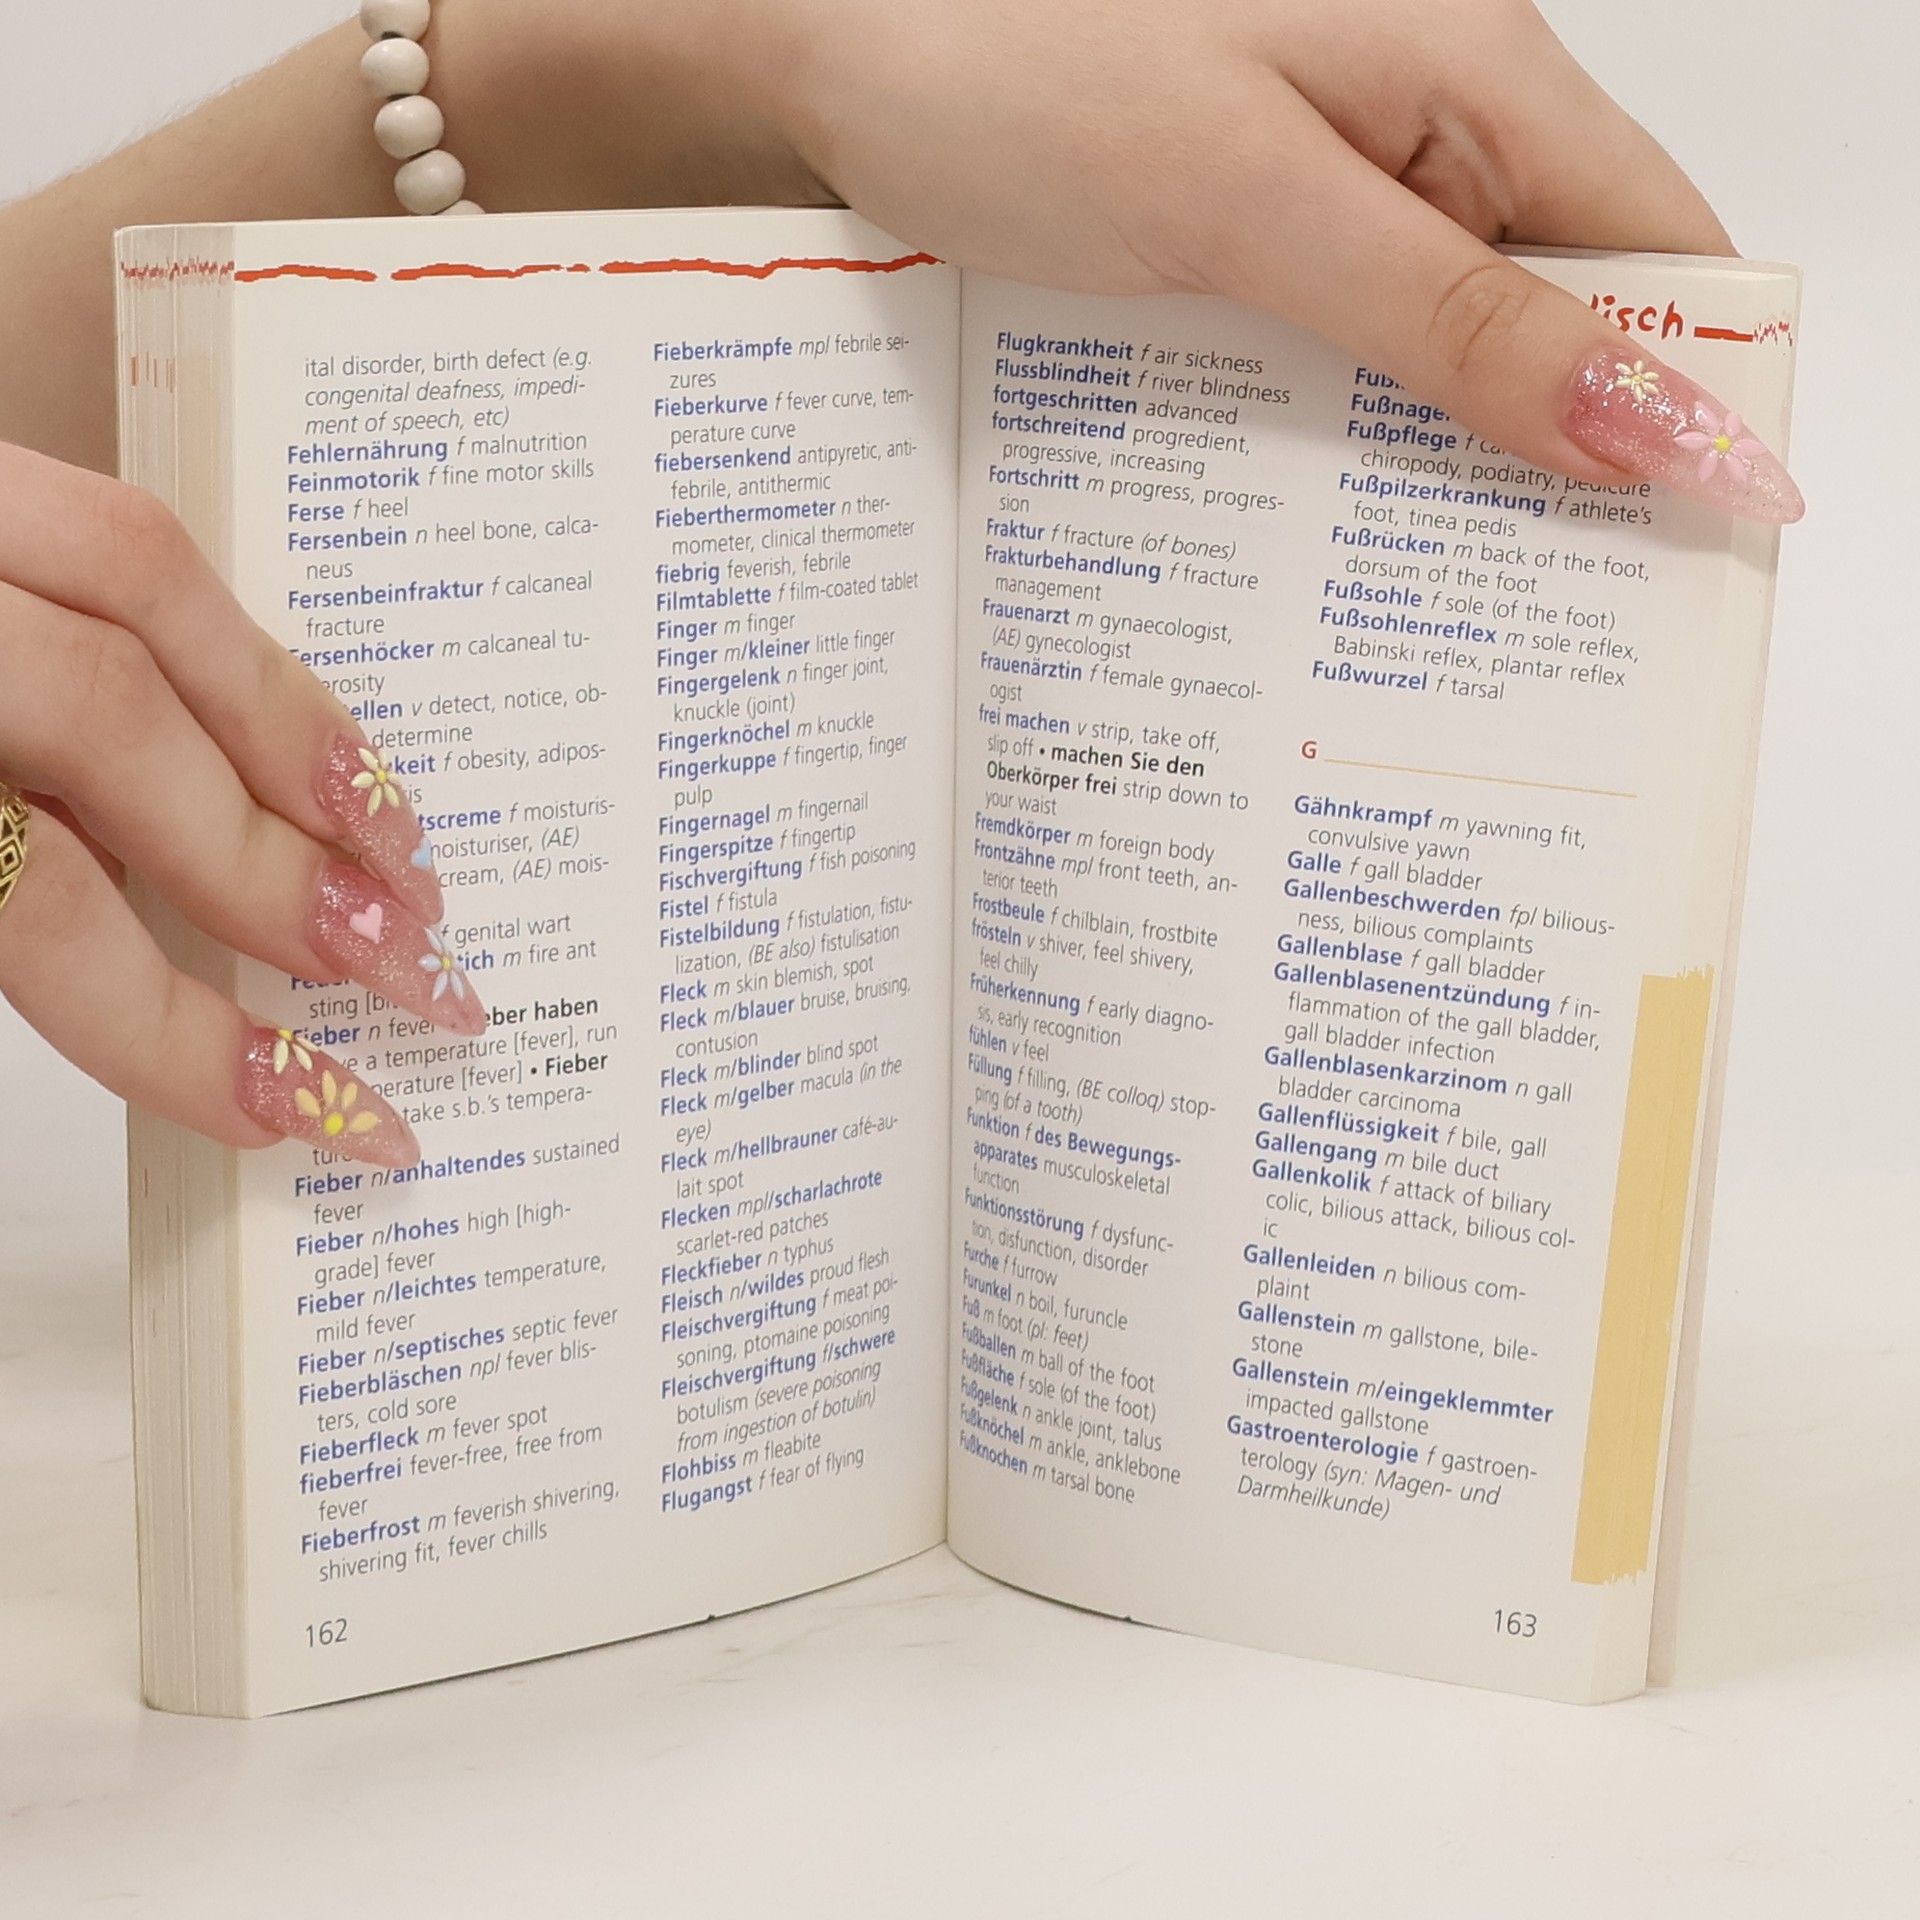 ital disorder, birth defect (e.g.
congenital deafness, impedi-
ment of speech, etc)
Fehlernährung f malnutrition
Feinmotorik f fine motor skills
Ferse f heel
Fersenbein n heel bone, calca-
neus
Fersenbeinfraktur f calcaneal
fracture
ersenhöcker m calcaneal tu-
erosity
ellen v detect, notice, ob-
determine
keit f obesity, adipos-
is
tscreme f moisturis-
moisturiser, (AE)
cream, (AE) mois-
f genital wart
tich m fire ant
sting
Fieber n fever eber haben
e a temperature [fever], run
perature [fever] • Fieber
take s.b.'s tempera-
Fieber n/anhaltendes sustained
fever
Fieber n/hohes high [high-
grade] fever
Fieber n/leichtes temperature,
mild fever
Fieber n/septisches septic fever
Fieberbläschen npl fever blis-
ters, cold sore
Fieberfleck m fever spot
fieberfrei fever-free, free from
fever
Fieberfrost m feverish shivering,
shivering fit, fever chills
162
Fieberkrämpfe mpl febrile sei-
zures
Fieberkurve f fever curve, tem-
perature curve
fiebersenkend antipyretic, anti-
febrile, antithermic
Fieberthermometer n ther-
mometer, clinical thermometer
fiebrig feverish, febrile
Filmtablette f film-coated tablet
Finger m finger
Finger m/kleiner little finger
Fingergelenk n finger joint,
knuckle (joint)
Fingerknöchel m knuckle
Fingerkuppe f fingertip, finger
pulp
Fingernagel m fingernail
Fingerspitze f fingertip
Fischvergiftung f fish poisoning
Fistel f fistula
Fistelbildung f fistulation, fistu-
lization, (BE also) fistulisation
Fleck m skin blemish, spot
Fleck m/blauer bruise, bruising,
contusion
Fleck m/blinder blind spot
Fleck m/gelber macula (in the
eye)
Fleck m/hellbrauner café-au-
lait spot
Flecken mpl/scharlachrote
scarlet-red patches
Fleckfieber n typhus
Fleisch n/wildes proud flesh
Fleischvergiftung f meat poi-
soning, ptomaine poisoning
Fleischvergiftung f/schwere
botulism (severe poisoning
from ingestion of botulin)
Flohbiss m fleabite
Flugangst f fear of flying
isch
Flugkrankheit f air sickness
Flussblindheit f river blindness
fortgeschritten advanced
fortschreitend progredient,
progressive, increasing
Fortschritt m progress, progres-
sion
Fraktur f fracture (of bones)
Frakturbehandlung f fracture
management
Frauenarzt m gynaecologist,
(AE) gynecologist
Frauenärztin f female gynaecol-
ogist
frei machen v strip, take off,
slip off • machen Sie den
Oberkörper frei strip down to
your waist
Fremdkörper m foreign body
Frontzähne mpl front teeth, an-
terior teeth
Frostbeule f chilblain, frostbite
frösteln v shiver, feel shivery,
feel chilly
Früherkennung f early diagno-
sis, early recognition
fühlen v feel
Füllung f filling, (BE colloq) stop-
ping (of a tooth)
Funktion f des Bewegungs-
apparates musculoskeletal
function
Funktionsstörung f dysfunc-
tion, disfunction, disorder
Furche f furrow
Furunkel n boil, furuncle
Fuß m foot (pl: feet)
Fußballen m ball of the foot
Fußfläche f sole (of the foot)
Fußgelenk n ankle joint, talus
Fußknöchel m ankle, anklebone
Fußknochen m tarsal bone
Fußnage
Fußpflege f
chiropody, podiatry, pedicure
Fußpilzerkrankung f athlete's
foot, tinea pedis
Fußrücken m back of the foot,
dorsum of the foot
Fußsohle f sole (of the foot)
Fußsohlenreflex m sole reflex,
Babinski reflex, plantar reflex
Fußwurzel f tarsal
G
Gähnkrampf m yawning fit,
convulsive yawn
Galle f gall bladder
Gallenbeschwerden fpl bilious-
ness, bilious complaints
Gallenblase f gall bladder
Gallenblasenentzündung f in-
flammation of the gall bladder,
gall bladder infection
Gallenblasenkarzinom n gall
bladder carcinoma
Gallenflüssigkeit f bile, gall
Gallengang m bile duct
Gallenkolik f attack of biliary
colic, bilious attack, bilious col-
ic
Gallenleiden n bilious com-
plaint
Gallenstein m gallstone, bile-
stone
Gallenstein m/eingeklemmter
impacted gallstone
Gastroenterologie f gastroen-
terology (syn: Magen- und
Darmheilkunde)
163